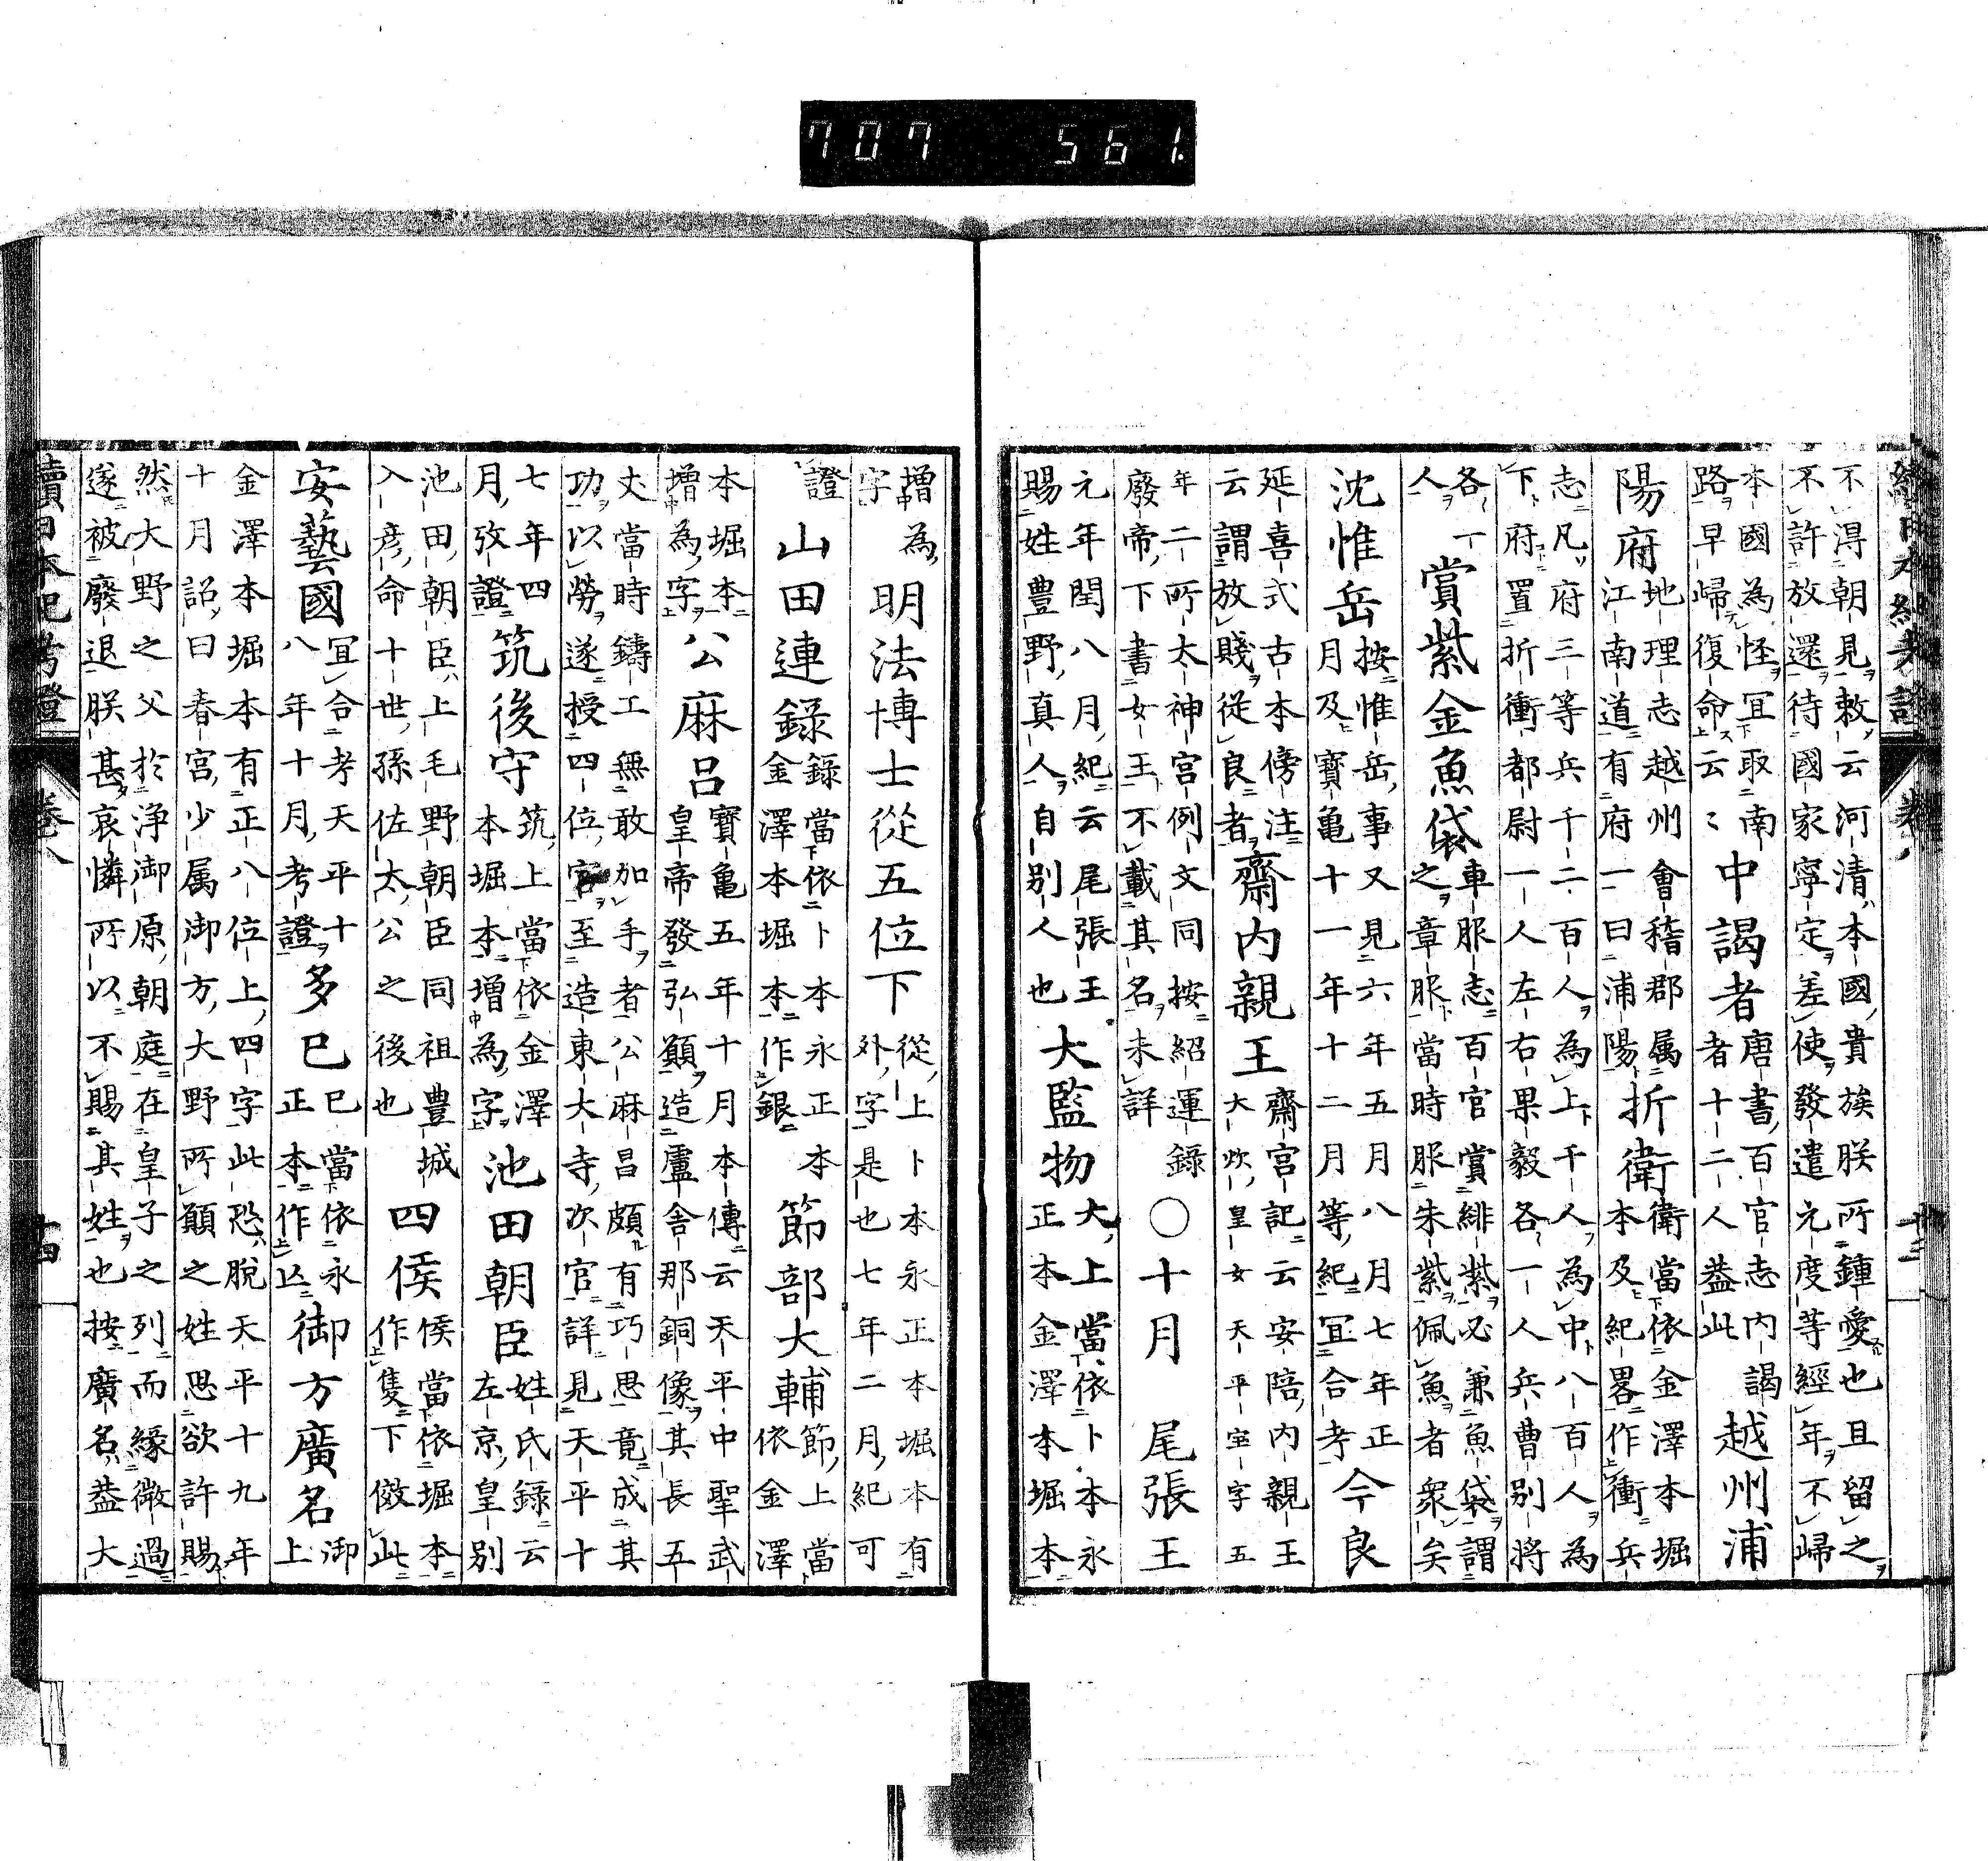 707 561.
不得朝見、敕云河清、本國貴族朕所鍾愛也且留之
不許放還待國家寧定差使發遣元度等經年不歸
本國為怪宜取南
路早歸復命云〻
中謁者
唐書百官志内謁
者十二人葢此
越州浦
陽府
地理志越州會稽郡属
江南道有府一曰浦陽
折衛
衛當依金澤本堀
本及紀畧作衝兵
志凡府三等兵千二百人為上千人為中八百人為
下府置折衝都尉一人左右果毅各一人兵曹別將
各一
人
賞紫金魚袋
車服志百官賞緋紫必兼魚袋謂
之章服當時服朱紫佩魚者衆矣
沈惟岳
按惟岳事又見六年五月八月七年正
月及寶亀十一年十二月等紀宜合考
今良
延喜式古本傍注
云謂放賤從良者
齋内親王
齋宮記云安陪内親王
大炊皇女天平宝字五
年二所太神宮例文同按紹運録
廢帝下書女王不載其名未詳
○十月 尾張王
元年閏八月紀云尾張王
賜姓豊野真人自別人也
大監物
大上當依卜本永
正本金澤本堀本
增為
字
明法博士從五位下
從上卜本永正本堀本有
外字是也七年二月紀可
證
山田連錄
錄當依卜本永正本
金澤本堀本作銀
節部大輔
節上當
依金澤
本堀本
增為字
公麻呂
寶亀五年十月本傳云天平中聖武
皇帝發弘願造盧舎那銅像其長五
丈當時鑄工無敢加手者公麻呂頗有巧思竟成其
功以勞遂授四位官至造東大寺次官詳見天平十
七年四
月攷證
筑後守
筑上當依金澤
本堀本增為字
池田朝臣
姓氏録云
左京皇別
池田朝臣上毛野朝臣同祖豊城
入彦命十世孫佐太公之後也
四侯
侯當依堀本
作隻下傚此
安藝國
宜合考天平十
八年十月考證
多巳
巳當依永
正本作
御方廣名
御
上
金澤本堀本有正八位上四字此恐脫天平十九年
十月詔曰春宮少属御方大野所願之姓思欲許賜
然大野之父於浄御原朝庭在皇子之列而緣微過
遂被廢退朕甚哀憐所以不賜其姓也按廣名葢大
續日本紀考證
卷八
十四